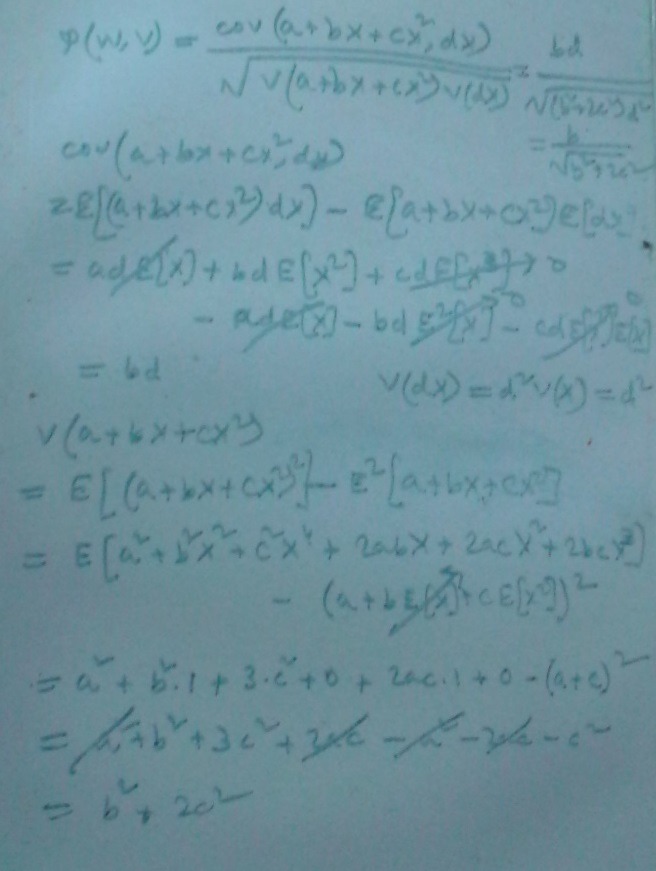 φ(W,V) = cov(a+bx+cx², dx) / √(V(a+bx+cx²) V(dx)) = bd / √((b²+2c²)d²)
= b / √(b²+2c²)
cov(a+bx+cx², dx)
= E[(a+bx+cx²)dx] - E[a+bx+cx²]E[dx]
= adE[x] + bdE[x²] + cdE[x³]→0
- adE[x] - bdE²[x]→0 - cdE[x²]E[x] 0
= bd
V(dx) = d²V(x) = d²
V(a+bx+cx²)
= E[(a+bx+cx²)²] - E²[a+bx+cx²]
= E[a²+b²x²+c²x⁴ + 2abx + 2acx² + 2bcx³]
- (a+bE[x]+cE[x²])²
= a² + b².1 + 3.c² + 0 + 2ac.1 + 0 - (a+c)²
= a²+b²+3c²+2ac - a² - 2ac - c²
= b² + 2c²